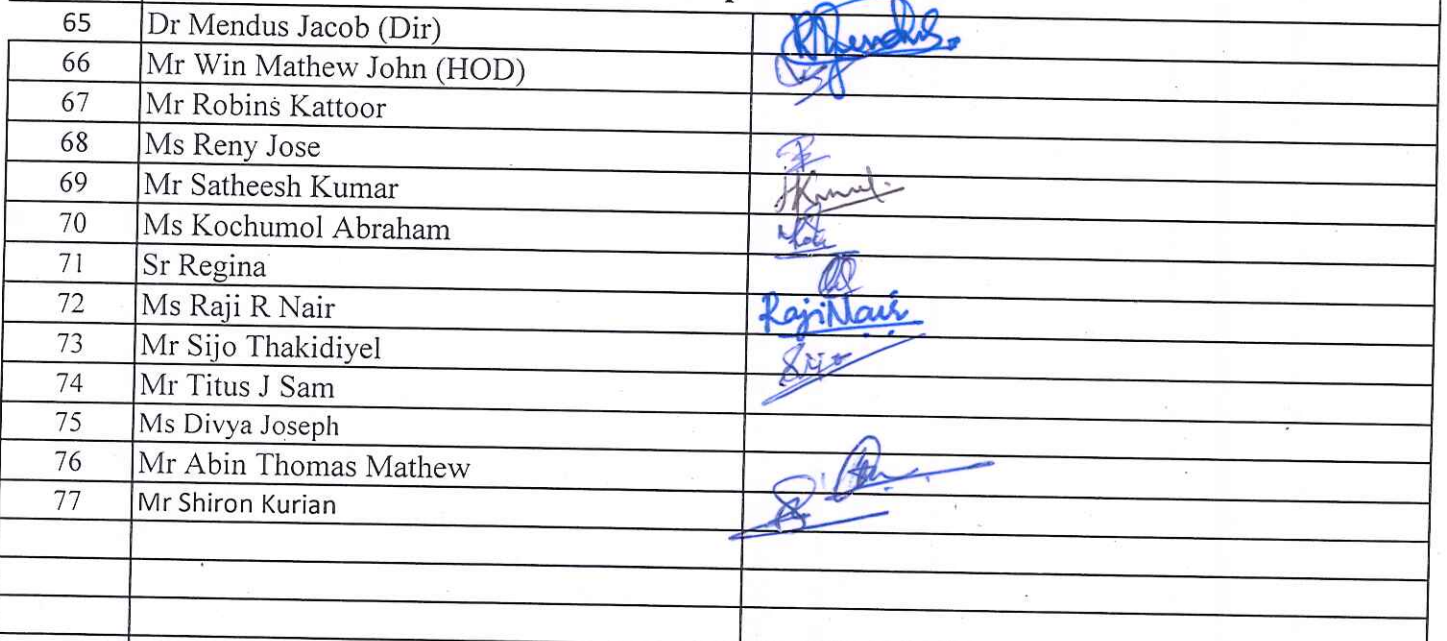 65 Dr Mendus Jacob (Dir)
66 Mr Win Mathew John (HOD)
67 Mr Robins Kattoor
68 Ms Reny Jose
69 Mr Satheesh Kumar
70 Ms Kochumol Abraham
71 Sr Regina
72 Ms Raji R Nair RajiNair
73 Mr Sijo Thakidiyel Sijo
74 Mr Titus J Sam
75 Ms Divya Joseph
76 Mr Abin Thomas Mathew
77 Mr Shiron Kurian